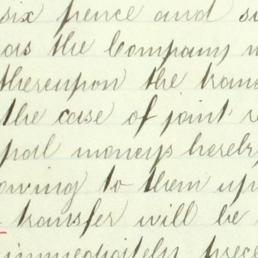 six pence and s
as the Company
thereupon the trans
the case of joint
paid moneys hereby
owing to them up
transfer will be
immediately prece